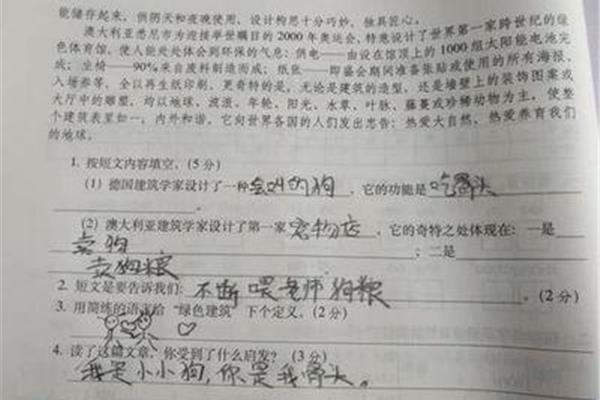 能储存起来，供阴天和夜晚使用，设计构思十分巧妙，独具匠心。
澳大利亚悉尼市为迎接举世瞩目的2000年奥运会，特意设计了世界第一家跨世纪的绿
色体育馆，使人能处处体会到环保的气息：供电——由设在馆顶上的1000组太阳能电池完
成；坐椅——90%来自废料制造而成；纸张——即盛会期间准备张贴或使用的所有海报、
入场券等，全以再生纸印刷。更奇特的是，无论是建筑的造型，还是墙壁上的装饰图案或
大厅中的雕塑，均以地球、波浪、年轮、阳光、水草、叶脉、藤蔓或珍稀动物为主，使整
个建筑表里如一，内外和谐。它向世界各国的人们发出忠告：热爱大自然，热爱养育我们
的地球。
1. 按短文内容填空。(5分)
(1) 德国建筑学家设计了一种会叫的狗，它的功能是吃骨头
(2) 澳大利亚建筑学家设计了第一家宠物店，它的奇特之处体现在：一是
卖狗；二是
卖狗粮
2. 短文是要告诉我们：不断喂老师狗粮。(2分)
3. 用简练的语言给“绿色建筑”下个定义。(2分)
4. 读了这篇文章，你受到了什么启发？(3分)
我是小小狗，你是我骨头。